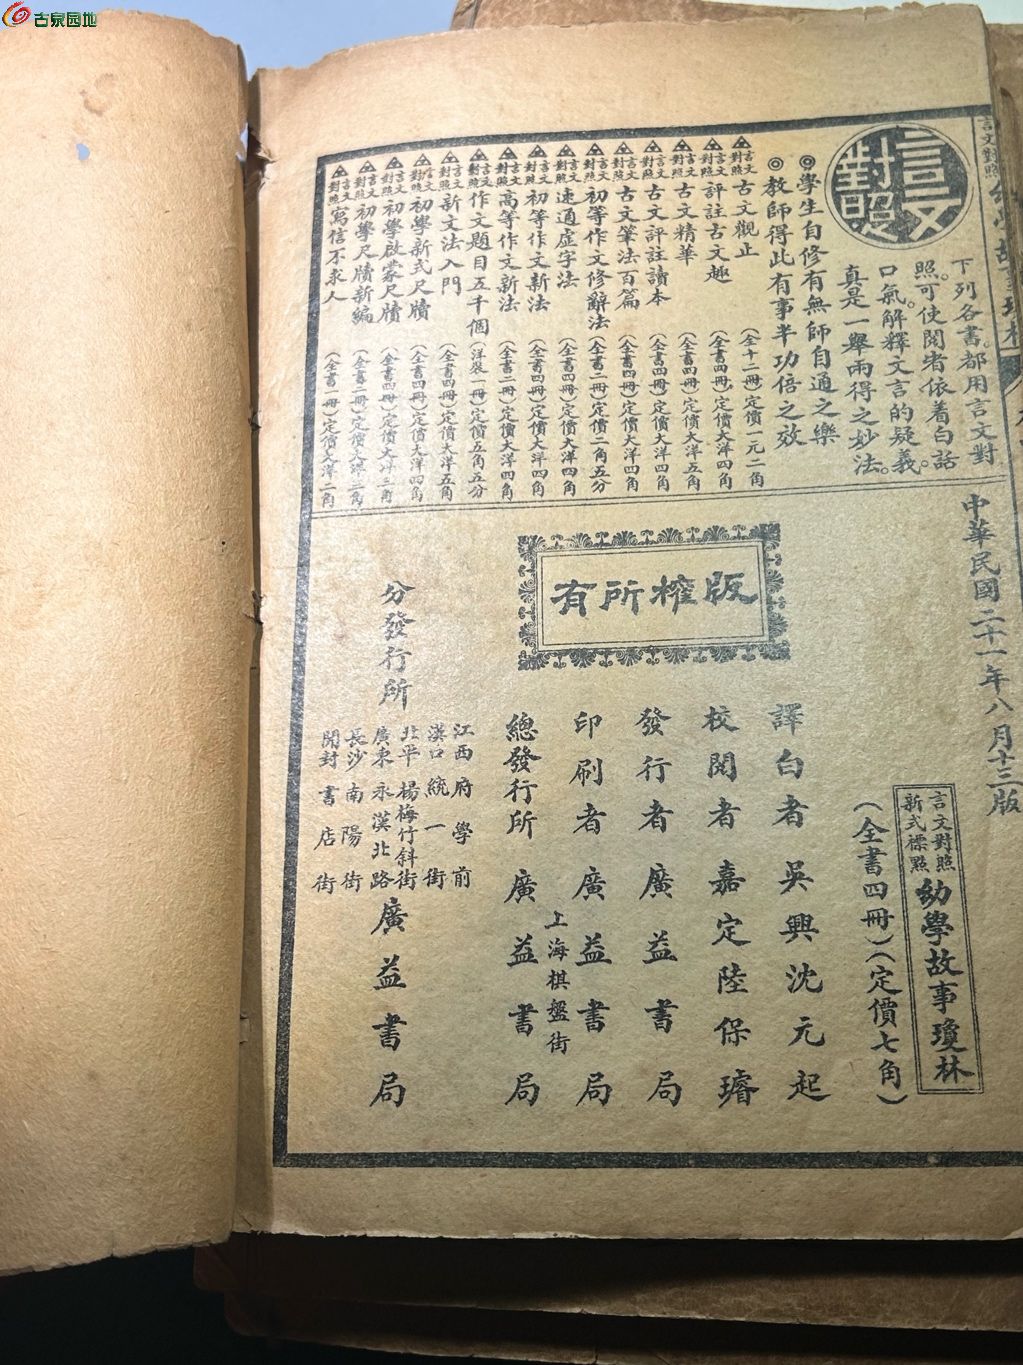 古泉园地
言文對照
下列各書。都用言文對
照。可使閱者依着白話
口氣。解釋文言的疑義。
真是一舉兩得之妙法。
◎學生自修有無師自通之樂
◎教師得此有事半功倍之效
言文對照 古文觀止 (全十二冊)定價一元二角
言文對照 評註古文趣 (全書四冊)定價大洋四角
言文對照 古文精華 (全書四冊)定價大洋五角
言文對照 古文評註讀本 (全書四冊)定價大洋四角
言文對照 古文筆法百篇 (全書四冊)定價大洋四角
言文對照 初等作文修辭法 (全書二冊)定價二角五分
言文對照 速通虛字法 (全書四冊)定價大洋四角
言文對照 初等作文新法 (全書四冊)定價大洋四角
言文對照 高等作文新法 (全書二冊)定價大洋四角
言文對照 作文題目五千個 (洋裝一冊)定價五角五分
言文對照 新文法入門 (全書四冊)定價大洋五角
言文對照 初學新式尺牘 (全書四冊)定價大洋四角
言文對照 初學啟蒙尺牘 (全書四冊)定價大洋三角
言文對照 初學尺牘新編 (全書二冊)定價大洋二角
言文對照 寫信不求人 (全書一冊)定價大洋二角
中華民國二十一年八月十三版
言文對照
新式標點
幼學故事瓊林
(全書四冊)(定價七角)
版權所有
譯白者 吳興沈元起
校閱者 嘉定陸保璿
發行者 廣益書局
印刷者 廣益書局
上海棋盤街
總發行所 廣益書局
分發行所
江西府學前
漢口統一街
北平楊梅竹斜街
廣東永漢北路
長沙南陽街
開封書店街
廣益書局